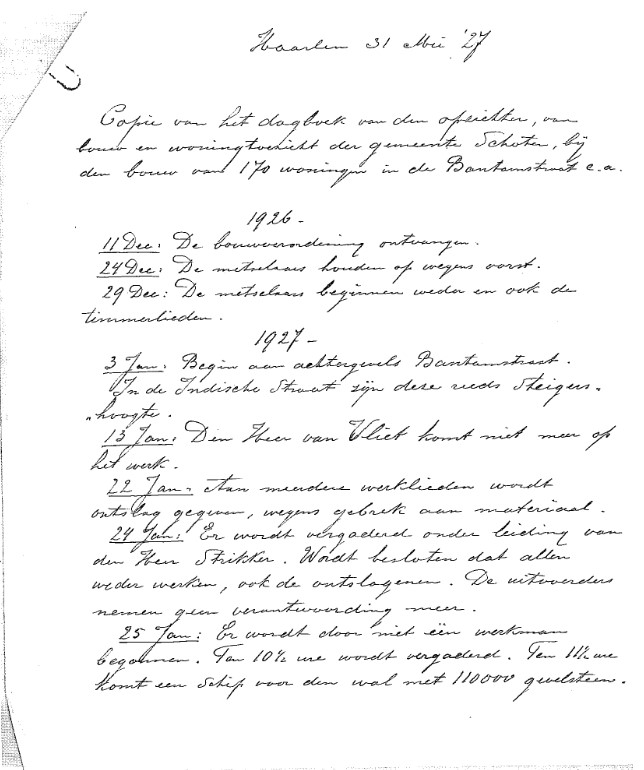 Haarlem 31 Mei '27
Copie van het dagboek van den opzichter, van
bouw en woningtoezicht der gemeente Schoten, bij
den bouw van 170 woningen in de Bantamstraat e.a.
1926 -
11 Dec: De bouwverordening ontvangen.
24 Dec: De metselaars houden op wegens vorst.
29 Dec: De metselaars beginnen weder en ook de
timmerlieden.
1927 -
3 Jan: Begin aan achtergevels Bantamstraat.
In de Indische Straat zijn deze reeds steigers-
"hoogte.
13 Jan: Den Heer van Vliet komt niet meer op
het werk.
22 Jan: Aan meerdere werklieden wordt
ontslag gegeven, wegens gebrek aan materiaal.
24 Jan: Er wordt vergaderd onder leiding van
den Heer Strikker. Wordt besloten dat allen
weder werken, ook de ontslagenen. De uitvoerders
nemen geen verantwoording meer.
25 Jan: Er wordt door niet één werkman
begonnen. Ten 10½ ure wordt vergaderd. Ten 11½ ure
komt een schip voor den wal met 110000 gevelsteen.